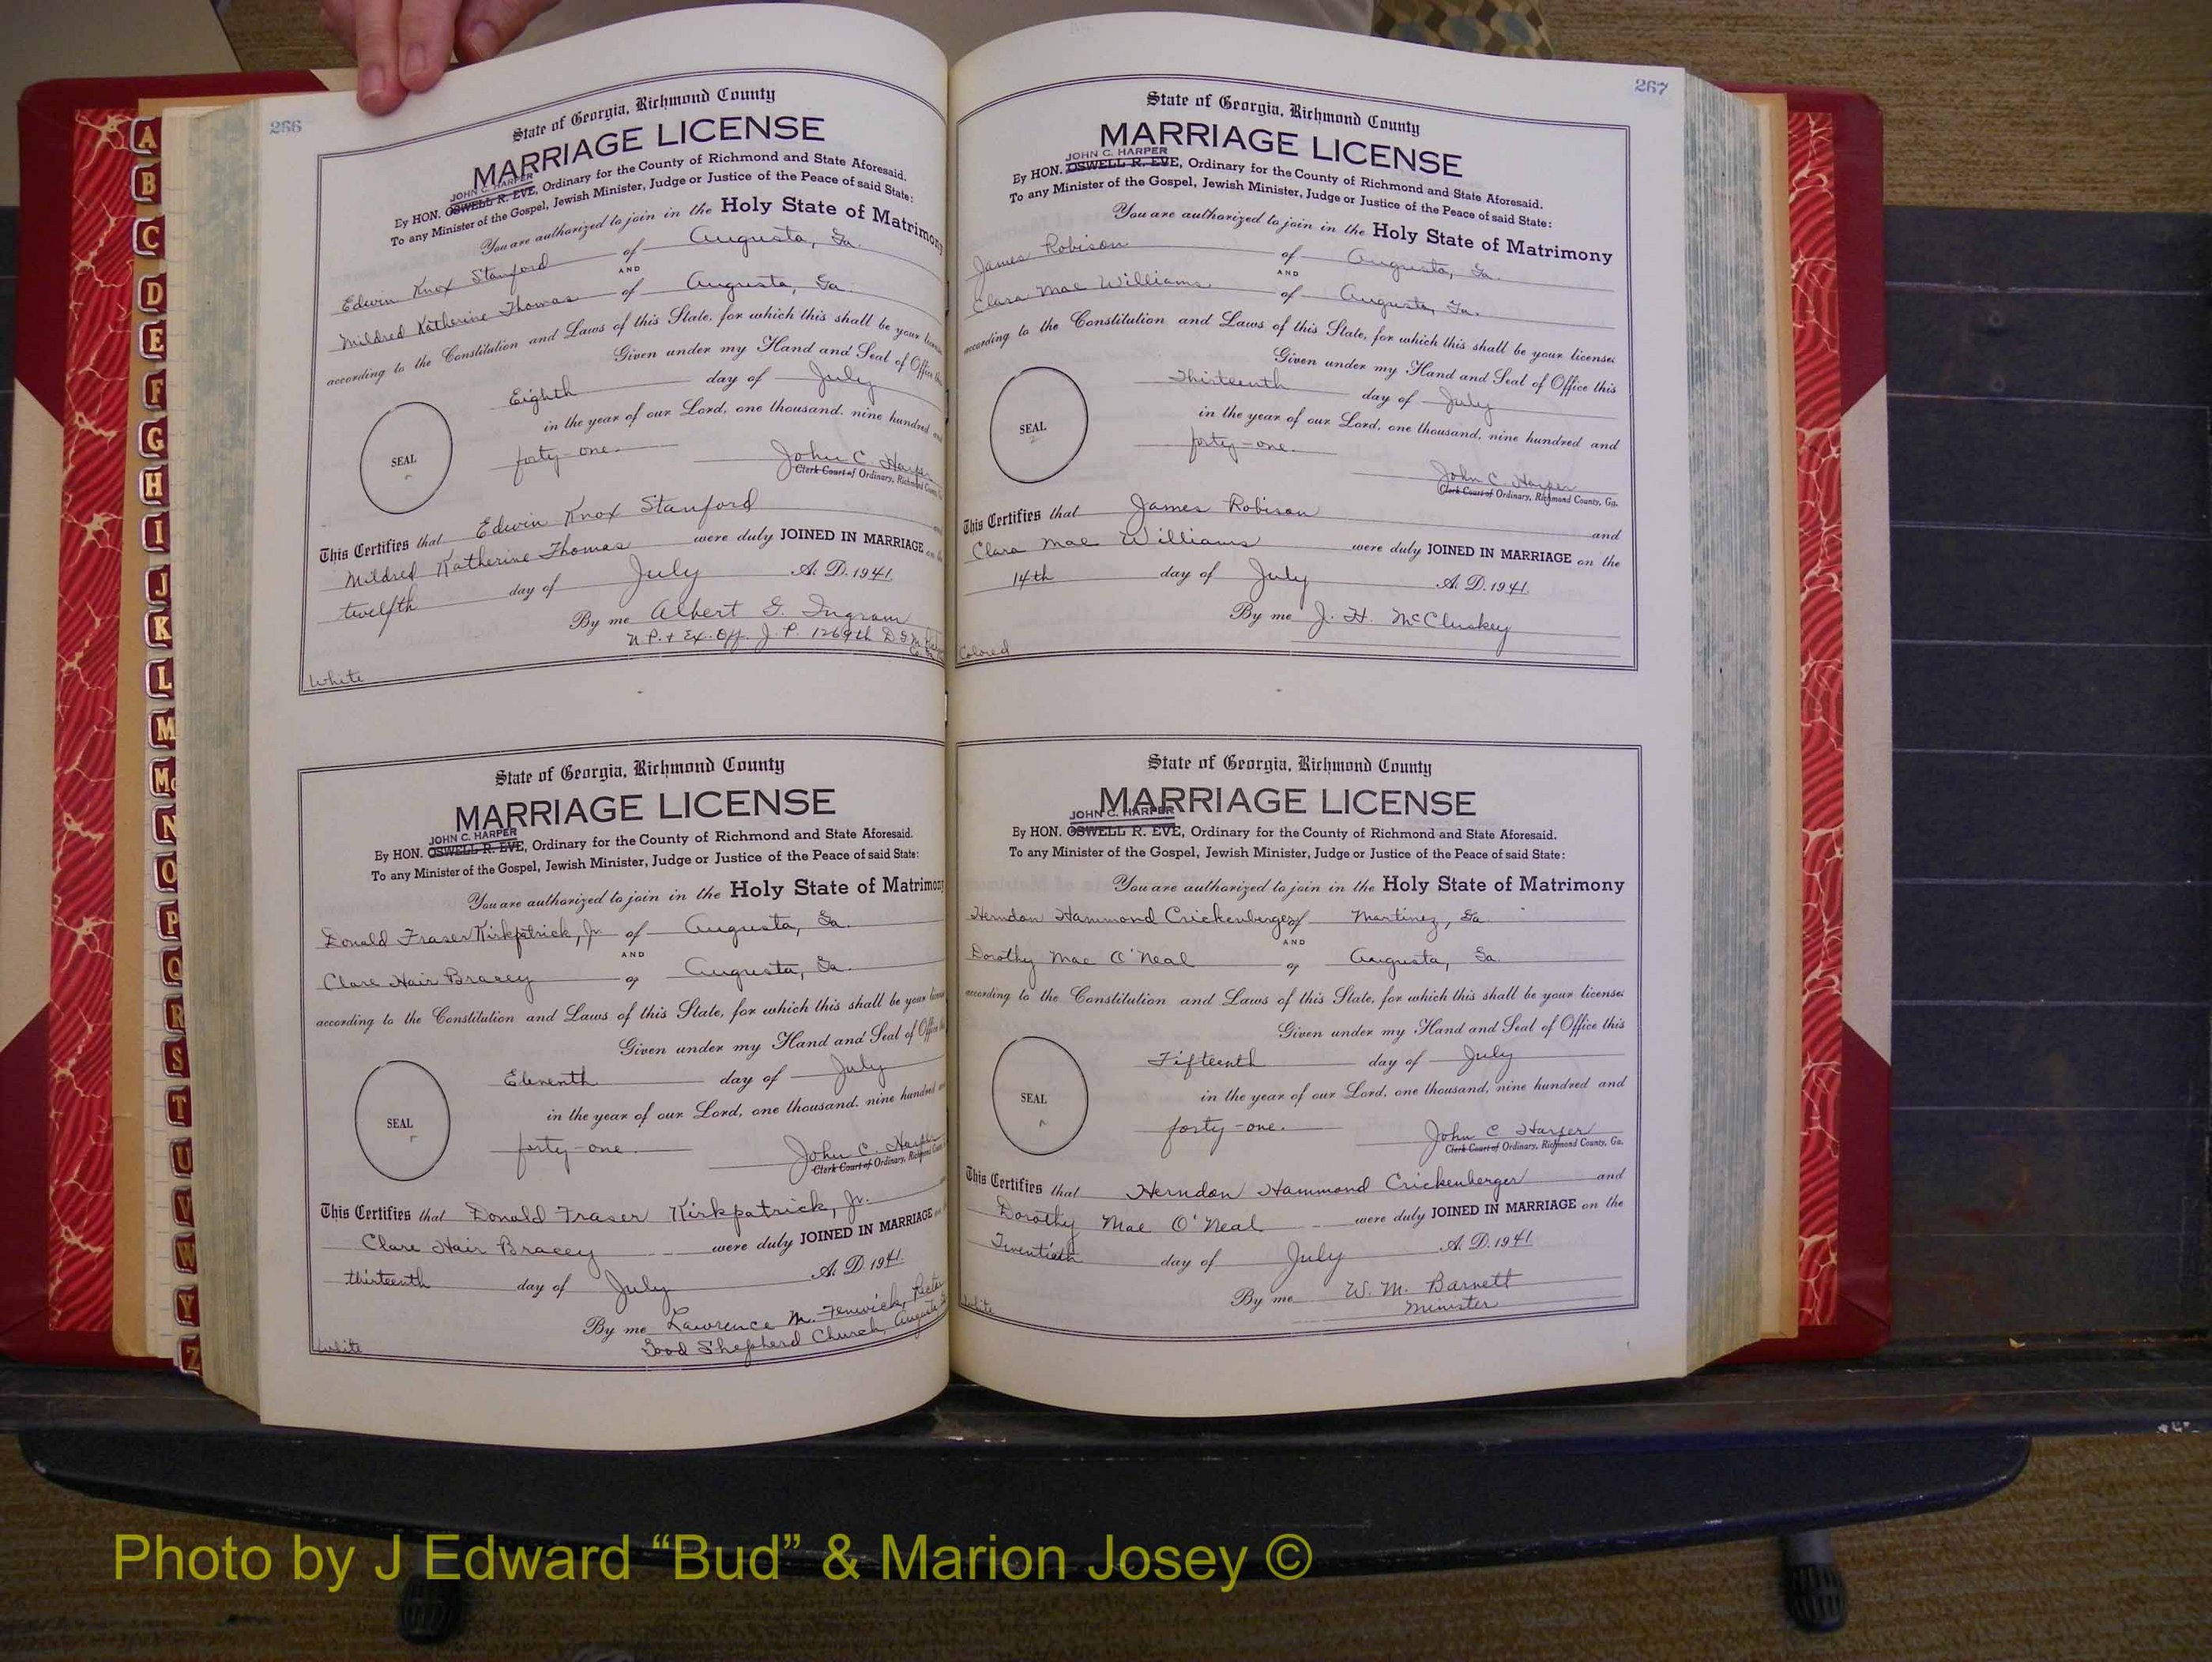 266
State of Georgia, Richmond County
MARRIAGE LICENSE
JOHN C. HARPER
By HON. OSWELL R. EVE, Ordinary for the County of Richmond and State Aforesaid.
To any Minister of the Gospel, Jewish Minister, Judge or Justice of the Peace of said State:
You are authorized to join in the Holy State of Matrimony
Edwin Knox Stanford of Augusta, Ga.
AND
Mildred Katherine Thomas of Augusta, Ga.
according to the Constitution and Laws of this State, for which this shall be your
Given under my Hand and Seal of Office
Eighth day of July
in the year of our Lord, one thousand, nine hundred
SEAL
forty-one.
John C. Harper
Clerk Court of Ordinary, Richmond County
This Certifies that Edwin Knox Stanford
Mildred Katherine Thomas were duly JOINED IN MARRIAGE on
twelfth day of July A. D. 1941
By me Albert G. Ingram
N. P. + Ex. Off. J. P. 1269th D G. M.
White
State of Georgia, Richmond County
MARRIAGE LICENSE
JOHN C. HARPER
By HON. OSWELL R. EVE, Ordinary for the County of Richmond and State Aforesaid.
To any Minister of the Gospel, Jewish Minister, Judge or Justice of the Peace of said State:
You are authorized to join in the Holy State of Matrimony
Donald Fraser Kirkpatrick, Jr. of Augusta, Ga.
AND
Clare Hair Bracey of Augusta, Ga.
according to the Constitution and Laws of this State, for which this shall be your
Given under my Hand and Seal of Office
Eleventh day of July
in the year of our Lord, one thousand, nine hundred
SEAL
forty-one.
John C. Harper
Clerk Court of Ordinary, Richmond County
This Certifies that Donald Fraser Kirkpatrick, Jr.
Clare Hair Bracey were duly JOINED IN MARRIAGE
thirteenth day of July A. D. 1941
By me Lawrence M. Fenwick, Rector
Good Shepherd Church, Augusta
White
267
State of Georgia, Richmond County
MARRIAGE LICENSE
JOHN C. HARPER
By HON. OSWELL R. EVE, Ordinary for the County of Richmond and State Aforesaid.
To any Minister of the Gospel, Jewish Minister, Judge or Justice of the Peace of said State:
You are authorized to join in the Holy State of Matrimony
James Robison of Augusta, Ga.
AND
Clara Mae Williams of Augusta, Ga.
according to the Constitution and Laws of this State, for which this shall be your license.
Given under my Hand and Seal of Office this
Thirteenth day of July
in the year of our Lord, one thousand, nine hundred and
SEAL
forty-one.
John C. Harper
Clerk Court of Ordinary, Richmond County, Ga.
This Certifies that James Robison and
Clara Mae Williams were duly JOINED IN MARRIAGE on the
14th day of July A. D. 1941
By me J. H. McCluskey
Colored
State of Georgia, Richmond County
MARRIAGE LICENSE
JOHN C. HARPER
By HON. OSWELL R. EVE, Ordinary for the County of Richmond and State Aforesaid.
To any Minister of the Gospel, Jewish Minister, Judge or Justice of the Peace of said State:
You are authorized to join in the Holy State of Matrimony
Herndon Hammond Crickenberger of Martinez, Ga.
AND
Dorothy Mae O'Neal of Augusta, Ga.
according to the Constitution and Laws of this State, for which this shall be your license.
Given under my Hand and Seal of Office this
Fifteenth day of July
in the year of our Lord, one thousand, nine hundred and
SEAL
forty-one.
John C Harper
Clerk Court of Ordinary, Richmond County, Ga.
This Certifies that Herndon Hammond Crickenberger and
Dorothy Mae O'Neal were duly JOINED IN MARRIAGE on the
Twentieth day of July A. D. 1941
By me W. M. Barnett
Minister
White
A
B
C
D
E
F
G
H
I
J
K
L
M
Mc
N
O
P
Q
R
S
T
U
V
W
Y
Z
Photo by J Edward “Bud” & Marion Josey ©